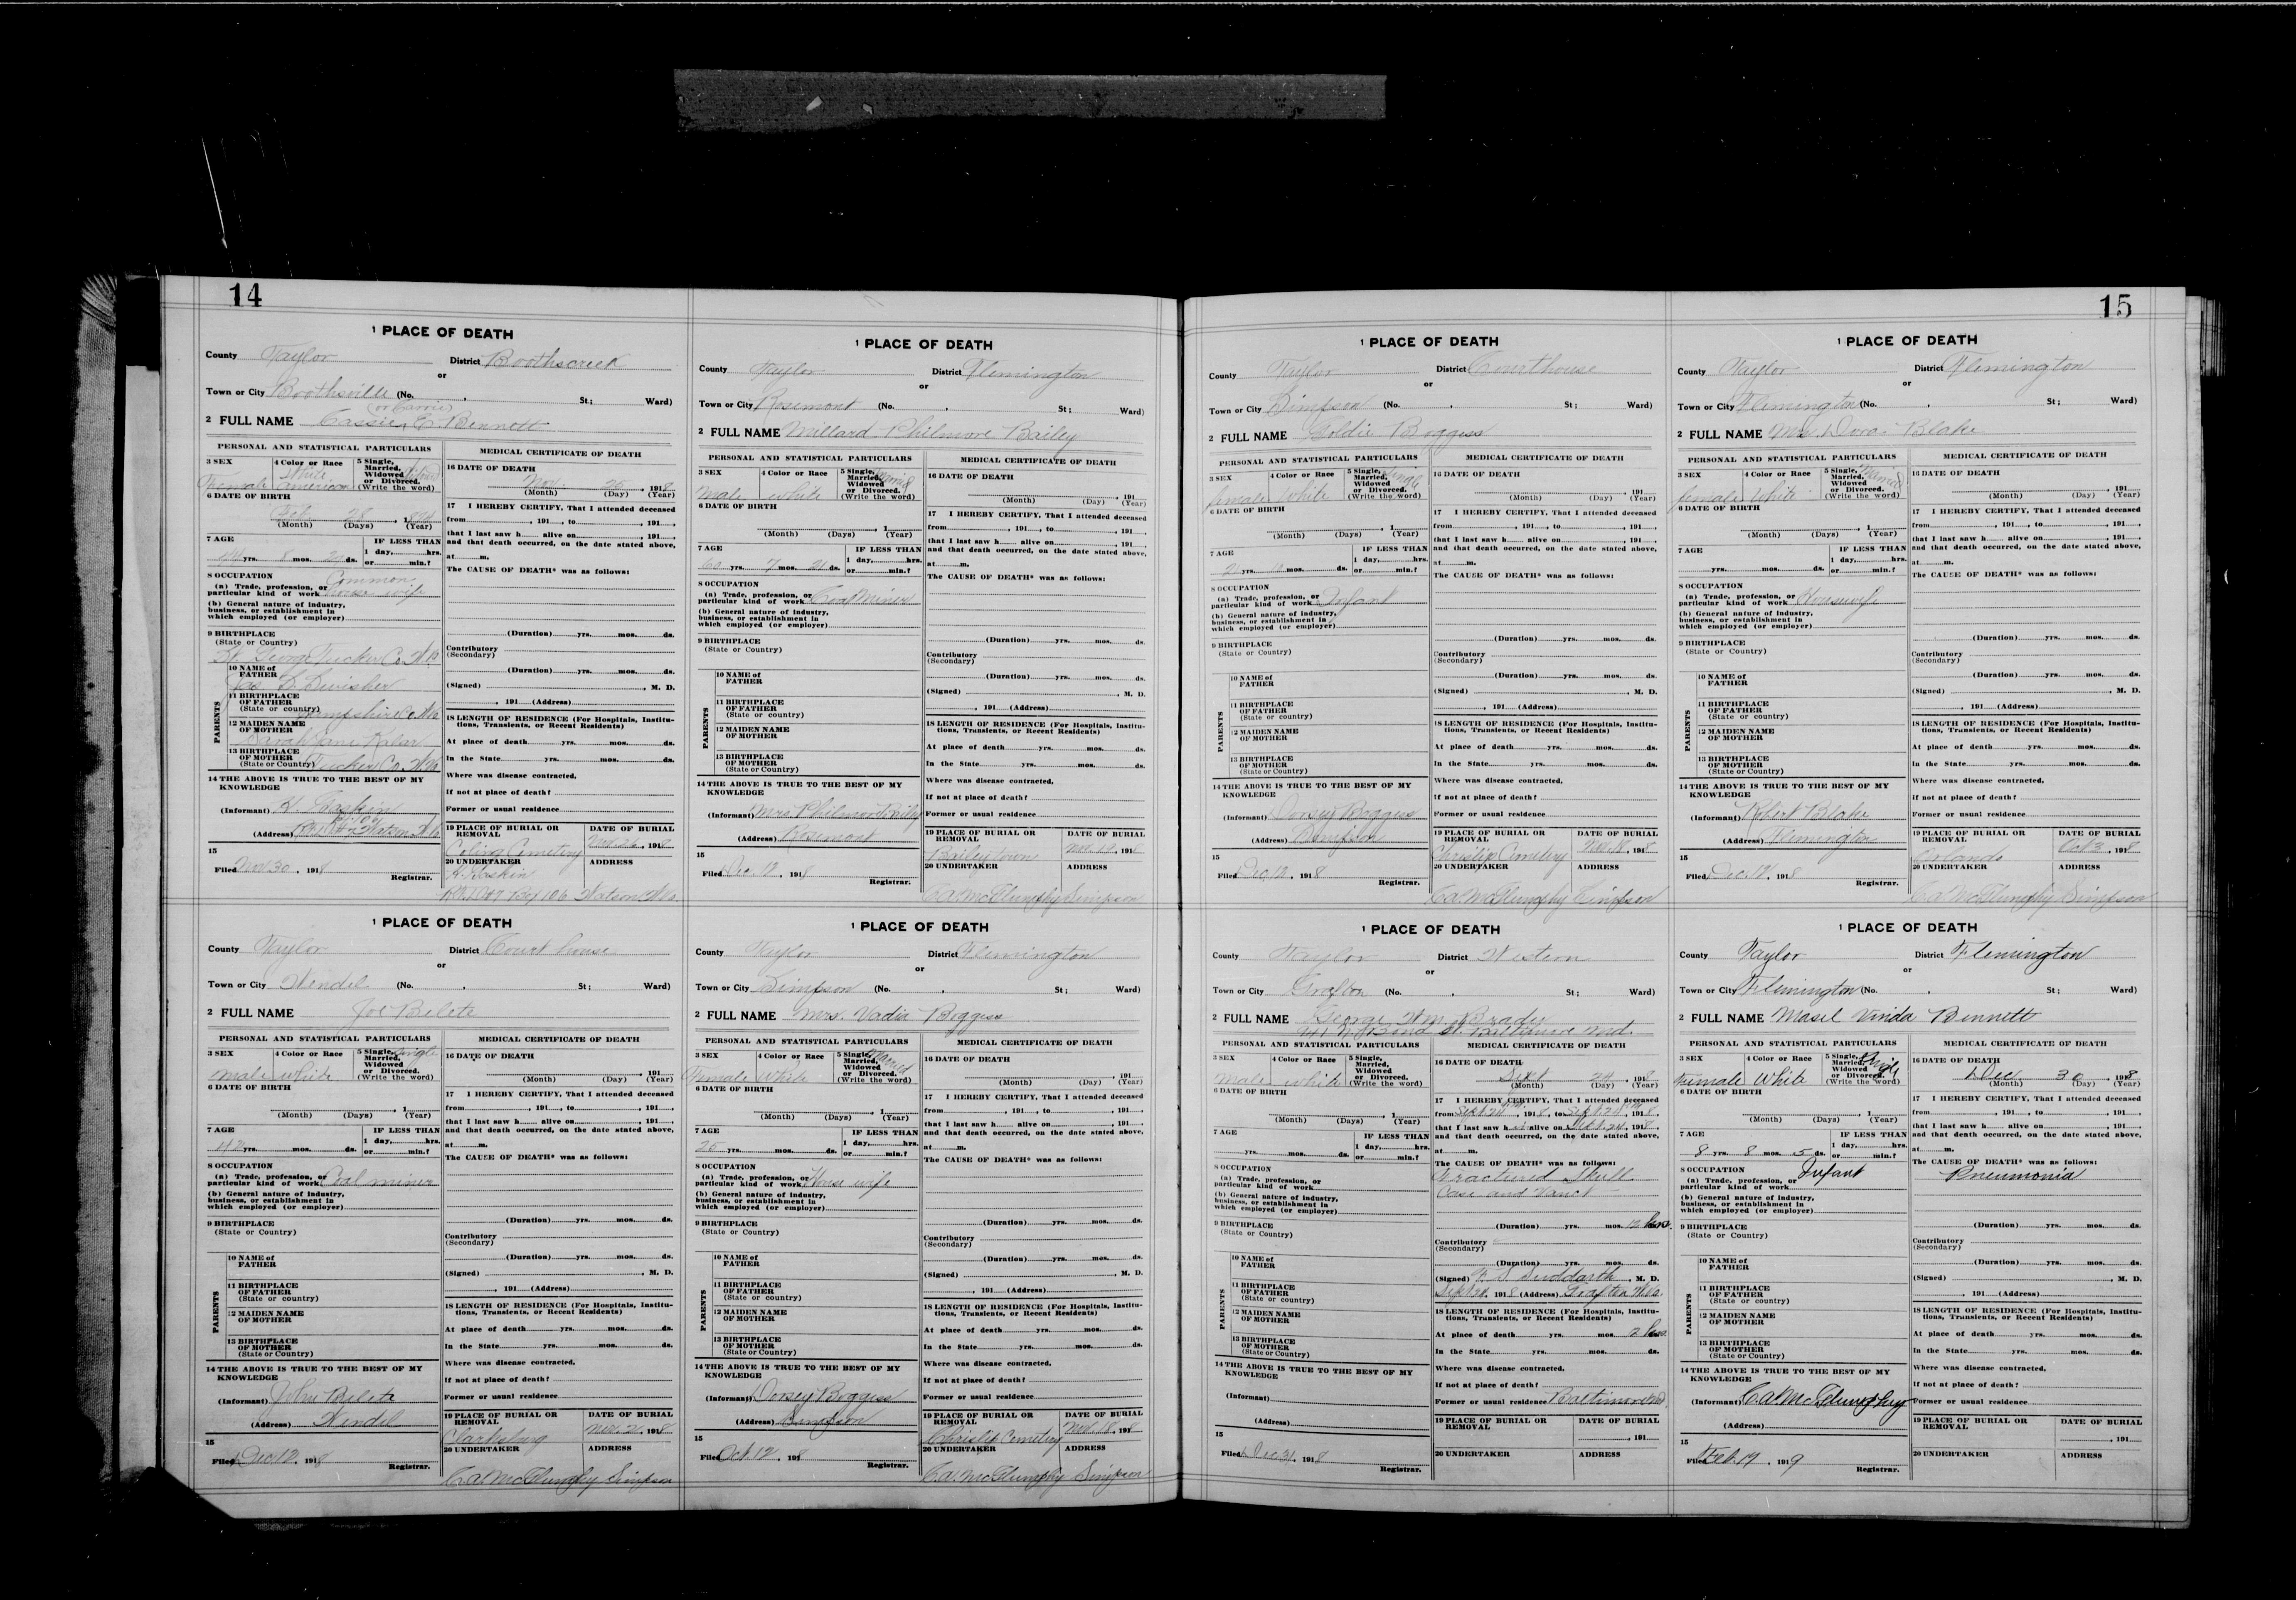 14
1 PLACE OF DEATH
County Taylor District Boothscreek
or
Town or City Boothsville (No. , St; Ward)
(or Carrie)
2 FULL NAME Cassie E. Bennett
PERSONAL AND STATISTICAL PARTICULARS
3 SEX Female
4 Color or Race White American
5 Single, Married, Widowed or Divorced. (Write the word)
6 DATE OF BIRTH
Feb 28, 1874
(Month) (Days) (Year)
7 AGE
44 yrs. 8 mos. ds.
IF LESS THAN 1 day, hrs. or min.?
8 OCCUPATION
(a) Trade, profession, or particular kind of work Common house wife
(b) General nature of industry, business, or establishment in which employed (or employer)
9 BIRTHPLACE
(State or Country)
St. George Tucker Co. W Va
PARENTS
10 NAME of FATHER
Jas
11 BIRTHPLACE OF FATHER
(State or country) Hampshire Co. W Va
12 MAIDEN NAME OF MOTHER
Sarah Jane
13 BIRTHPLACE OF MOTHER
(State or Country) Tucker Co. W Va
14 THE ABOVE IS TRUE TO THE BEST OF MY KNOWLEDGE
(Informant) H. Haskin
(Address) Watson W Va
15
Filed Nov 30, 1918
Registrar.
MEDICAL CERTIFICATE OF DEATH
16 DATE OF DEATH
Nov. 25, 1918
(Month) (Day) (Year)
17 I HEREBY CERTIFY, That I attended deceased
from , 191 , to , 191 ,
that I last saw h alive on , 191 ,
and that death occurred, on the date stated above,
at m.
The CAUSE OF DEATH* was as follows:
(Duration) yrs. mos. ds.
Contributory
(Secondary)
(Duration) yrs. mos. ds.
(Signed) , M. D.
, 191 (Address)
18 LENGTH OF RESIDENCE (For Hospitals, Institutions, Transients, or Recent Residents)
At place of death yrs. mos. ds.
In the State yrs. mos. ds.
Where was disease contracted,
If not at place of death?
Former or usual residence
19 PLACE OF BURIAL OR REMOVAL
Cemetery
DATE OF BURIAL
Nov 26, 1918
20 UNDERTAKER
H. Haskin
ADDRESS
Box 106 Watson W Va.
1 PLACE OF DEATH
County Taylor District Flemington
or
Town or City Rosemont (No. , St; Ward)
2 FULL NAME Millard Philmore Bailey
PERSONAL AND STATISTICAL PARTICULARS
3 SEX male
4 Color or Race white
5 Single, Married, Widowed or Divorced. (Write the word) Married
6 DATE OF BIRTH
, 1
(Month) (Days) (Year)
7 AGE
60 yrs. 7 mos. 21 ds.
IF LESS THAN 1 day, hrs. or min.?
8 OCCUPATION
(a) Trade, profession, or particular kind of work Coal Miner
(b) General nature of industry, business, or establishment in which employed (or employer)
9 BIRTHPLACE
(State or Country)
PARENTS
10 NAME of FATHER
11 BIRTHPLACE OF FATHER
(State or country)
12 MAIDEN NAME OF MOTHER
13 BIRTHPLACE OF MOTHER
(State or Country)
14 THE ABOVE IS TRUE TO THE BEST OF MY KNOWLEDGE
(Informant) Mrs Philmore Bailey
(Address) Rosemont
15
Filed Dec. 12, 1918
Registrar.
MEDICAL CERTIFICATE OF DEATH
16 DATE OF DEATH
, 191
(Month) (Day) (Year)
17 I HEREBY CERTIFY, That I attended deceased
from , 191 , to , 191 ,
that I last saw h alive on , 191 ,
and that death occurred, on the date stated above,
at m.
The CAUSE OF DEATH* was as follows:
(Duration) yrs. mos. ds.
Contributory
(Secondary)
(Duration) yrs. mos. ds.
(Signed) , M. D.
, 191 (Address)
18 LENGTH OF RESIDENCE (For Hospitals, Institutions, Transients, or Recent Residents)
At place of death yrs. mos. ds.
In the State yrs. mos. ds.
Where was disease contracted,
If not at place of death?
Former or usual residence
19 PLACE OF BURIAL OR REMOVAL
Bailey town
DATE OF BURIAL
Nov. 1918
20 UNDERTAKER
ADDRESS
C.A. McClumphy Simpson
1 PLACE OF DEATH
County Taylor District Court house
or
Town or City Wendel (No. , St; Ward)
2 FULL NAME Joe Beletz
PERSONAL AND STATISTICAL PARTICULARS
3 SEX male
4 Color or Race white
5 Single, Married, Widowed or Divorced. (Write the word) Single
6 DATE OF BIRTH
, 1
(Month) (Days) (Year)
7 AGE
42 yrs. mos. ds.
IF LESS THAN 1 day, hrs. or min.?
8 OCCUPATION
(a) Trade, profession, or particular kind of work Coal miner
(b) General nature of industry, business, or establishment in which employed (or employer)
9 BIRTHPLACE
(State or Country)
PARENTS
10 NAME of FATHER
11 BIRTHPLACE OF FATHER
(State or country)
12 MAIDEN NAME OF MOTHER
13 BIRTHPLACE OF MOTHER
(State or Country)
14 THE ABOVE IS TRUE TO THE BEST OF MY KNOWLEDGE
(Informant) John Beletz
(Address) Wendel
15
Filed Dec. 12, 1918
Registrar.
MEDICAL CERTIFICATE OF DEATH
16 DATE OF DEATH
, 191
(Month) (Day) (Year)
17 I HEREBY CERTIFY, That I attended deceased
from , 191 , to , 191 ,
that I last saw h alive on , 191 ,
and that death occurred, on the date stated above,
at m.
The CAUSE OF DEATH* was as follows:
(Duration) yrs. mos. ds.
Contributory
(Secondary)
(Duration) yrs. mos. ds.
(Signed) , M. D.
, 191 (Address)
18 LENGTH OF RESIDENCE (For Hospitals, Institutions, Transients, or Recent Residents)
At place of death yrs. mos. ds.
In the State yrs. mos. ds.
Where was disease contracted,
If not at place of death?
Former or usual residence
19 PLACE OF BURIAL OR REMOVAL
Clarksburg
DATE OF BURIAL
Nov. 21, 1918
20 UNDERTAKER
ADDRESS
C.A. McClumphy Simpson
1 PLACE OF DEATH
County Taylor District Flemington
or
Town or City Simpson (No. , St; Ward)
2 FULL NAME Mrs. Vadia Boggess
PERSONAL AND STATISTICAL PARTICULARS
3 SEX Female
4 Color or Race White
5 Single, Married, Widowed or Divorced. (Write the word) Married
6 DATE OF BIRTH
, 1
(Month) (Days) (Year)
7 AGE
25 yrs. mos. ds.
IF LESS THAN 1 day, hrs. or min.?
8 OCCUPATION
(a) Trade, profession, or particular kind of work House wife
(b) General nature of industry, business, or establishment in which employed (or employer)
9 BIRTHPLACE
(State or Country)
PARENTS
10 NAME of FATHER
11 BIRTHPLACE OF FATHER
(State or country)
12 MAIDEN NAME OF MOTHER
13 BIRTHPLACE OF MOTHER
(State or Country)
14 THE ABOVE IS TRUE TO THE BEST OF MY KNOWLEDGE
(Informant) Dorsey Boggess
(Address) Simpson
15
Filed Oct. 12, 1918
Registrar.
MEDICAL CERTIFICATE OF DEATH
16 DATE OF DEATH
, 191
(Month) (Day) (Year)
17 I HEREBY CERTIFY, That I attended deceased
from , 191 , to , 191 ,
that I last saw h alive on , 191 ,
and that death occurred, on the date stated above,
at m.
The CAUSE OF DEATH* was as follows:
(Duration) yrs. mos. ds.
Contributory
(Secondary)
(Duration) yrs. mos. ds.
(Signed) , M. D.
, 191 (Address)
18 LENGTH OF RESIDENCE (For Hospitals, Institutions, Transients, or Recent Residents)
At place of death yrs. mos. ds.
In the State yrs. mos. ds.
Where was disease contracted,
If not at place of death?
Former or usual residence
19 PLACE OF BURIAL OR REMOVAL
Chrislip Cemetery
DATE OF BURIAL
Nov. 18, 1918
20 UNDERTAKER
ADDRESS
C.A. McClumphy Simpson
15
1 PLACE OF DEATH
County Taylor District Courthouse
or
Town or City Simpson (No. , St; Ward)
2 FULL NAME Goldie Boggess
PERSONAL AND STATISTICAL PARTICULARS
3 SEX female
4 Color or Race White
5 Single, Married, Widowed or Divorced. (Write the word) Single
6 DATE OF BIRTH
, 1
(Month) (Days) (Year)
7 AGE
2 yrs. mos. ds.
IF LESS THAN 1 day, hrs. or min.?
8 OCCUPATION
(a) Trade, profession, or particular kind of work Infant
(b) General nature of industry, business, or establishment in which employed (or employer)
9 BIRTHPLACE
(State or Country)
PARENTS
10 NAME of FATHER
11 BIRTHPLACE OF FATHER
(State or country)
12 MAIDEN NAME OF MOTHER
13 BIRTHPLACE OF MOTHER
(State or Country)
14 THE ABOVE IS TRUE TO THE BEST OF MY KNOWLEDGE
(Informant) Dorsey Boggess
(Address) Simpson
15
Filed Dec. 12, 1918
Registrar.
MEDICAL CERTIFICATE OF DEATH
16 DATE OF DEATH
, 191
(Month) (Day) (Year)
17 I HEREBY CERTIFY, That I attended deceased
from , 191 , to , 191 ,
that I last saw h alive on , 191 ,
and that death occurred, on the date stated above,
at m.
The CAUSE OF DEATH* was as follows:
(Duration) yrs. mos. ds.
Contributory
(Secondary)
(Duration) yrs. mos. ds.
(Signed) , M. D.
, 191 (Address)
18 LENGTH OF RESIDENCE (For Hospitals, Institutions, Transients, or Recent Residents)
At place of death yrs. mos. ds.
In the State yrs. mos. ds.
Where was disease contracted,
If not at place of death?
Former or usual residence
19 PLACE OF BURIAL OR REMOVAL
Chrislip Cemetery
DATE OF BURIAL
Nov. 18, 1918
20 UNDERTAKER
ADDRESS
C.A. McClumphy Simpson
1 PLACE OF DEATH
County Taylor District Flemington
or
Town or City Flemington (No. , St; Ward)
2 FULL NAME Mrs. Dora Blake
PERSONAL AND STATISTICAL PARTICULARS
3 SEX female
4 Color or Race White
5 Single, Married, Widowed or Divorced. (Write the word) Married
6 DATE OF BIRTH
, 1
(Month) (Days) (Year)
7 AGE
yrs. mos. ds.
IF LESS THAN 1 day, hrs. or min.?
8 OCCUPATION
(a) Trade, profession, or particular kind of work Housewife
(b) General nature of industry, business, or establishment in which employed (or employer)
9 BIRTHPLACE
(State or Country)
PARENTS
10 NAME of FATHER
11 BIRTHPLACE OF FATHER
(State or country)
12 MAIDEN NAME OF MOTHER
13 BIRTHPLACE OF MOTHER
(State or Country)
14 THE ABOVE IS TRUE TO THE BEST OF MY KNOWLEDGE
(Informant) Robert Blake
(Address) Flemington
15
Filed Dec. 12, 1918
Registrar.
MEDICAL CERTIFICATE OF DEATH
16 DATE OF DEATH
, 191
(Month) (Day) (Year)
17 I HEREBY CERTIFY, That I attended deceased
from , 191 , to , 191 ,
that I last saw h alive on , 191 ,
and that death occurred, on the date stated above,
at m.
The CAUSE OF DEATH* was as follows:
(Duration) yrs. mos. ds.
Contributory
(Secondary)
(Duration) yrs. mos. ds.
(Signed) , M. D.
, 191 (Address)
18 LENGTH OF RESIDENCE (For Hospitals, Institutions, Transients, or Recent Residents)
At place of death yrs. mos. ds.
In the State yrs. mos. ds.
Where was disease contracted,
If not at place of death?
Former or usual residence
19 PLACE OF BURIAL OR REMOVAL
Orlando
DATE OF BURIAL
Oct 3, 1918
20 UNDERTAKER
ADDRESS
C.A. McClumphy Simpson
1 PLACE OF DEATH
County Taylor District Western
or
Town or City Grafton (No. , St; Ward)
2 FULL NAME George Wm. Brady
Bond St. Baltimore Md.
PERSONAL AND STATISTICAL PARTICULARS
3 SEX male
4 Color or Race white
5 Single, Married, Widowed or Divorced. (Write the word)
6 DATE OF BIRTH
, 1
(Month) (Days) (Year)
7 AGE
yrs. mos. ds.
IF LESS THAN 1 day, hrs. or min.?
8 OCCUPATION
(a) Trade, profession, or particular kind of work
(b) General nature of industry, business, or establishment in which employed (or employer)
9 BIRTHPLACE
(State or Country)
PARENTS
10 NAME of FATHER
11 BIRTHPLACE OF FATHER
(State or country)
12 MAIDEN NAME OF MOTHER
13 BIRTHPLACE OF MOTHER
(State or Country)
14 THE ABOVE IS TRUE TO THE BEST OF MY KNOWLEDGE
(Informant)
(Address)
15
Filed Dec 31, 1918
Registrar.
MEDICAL CERTIFICATE OF DEATH
16 DATE OF DEATH
Sept 24, 1918
(Month) (Day) (Year)
17 I HEREBY CERTIFY, That I attended deceased
from Sept. 24, 1918, to Sept. 24, 1918,
that I last saw h alive on Sept. 24, 1918,
and that death occurred, on the date stated above,
at m.
The CAUSE OF DEATH* was as follows:
Fractured Skull
(Duration) yrs. mos. 12 hrs.
Contributory
(Secondary)
(Duration) yrs. mos. ds.
(Signed) Suddarth, M. D.
1918 (Address) Grafton W Va.
18 LENGTH OF RESIDENCE (For Hospitals, Institutions, Transients, or Recent Residents)
At place of death yrs. mos. 12 hrs.
In the State yrs. mos. ds.
Where was disease contracted,
If not at place of death?
Former or usual residence Baltimore Md
19 PLACE OF BURIAL OR REMOVAL
DATE OF BURIAL
, 191
20 UNDERTAKER
ADDRESS
1 PLACE OF DEATH
County Taylor District Flemington
or
Town or City Flemington (No. , St; Ward)
2 FULL NAME Masel Vinda Bennett
PERSONAL AND STATISTICAL PARTICULARS
3 SEX Female
4 Color or Race White
5 Single, Married, Widowed or Divorced. (Write the word) Single
6 DATE OF BIRTH
, 1
(Month) (Days) (Year)
7 AGE
8 yrs. 8 mos. 5 ds.
IF LESS THAN 1 day, hrs. or min.?
8 OCCUPATION
(a) Trade, profession, or particular kind of work Infant
(b) General nature of industry, business, or establishment in which employed (or employer)
9 BIRTHPLACE
(State or Country)
PARENTS
10 NAME of FATHER
11 BIRTHPLACE OF FATHER
(State or country)
12 MAIDEN NAME OF MOTHER
13 BIRTHPLACE OF MOTHER
(State or Country)
14 THE ABOVE IS TRUE TO THE BEST OF MY KNOWLEDGE
(Informant) C.A. McClumphy
(Address)
15
Filed Feb. 17, 1919
Registrar.
MEDICAL CERTIFICATE OF DEATH
16 DATE OF DEATH
Dec 30, 1918
(Month) (Day) (Year)
17 I HEREBY CERTIFY, That I attended deceased
from , 191 , to , 191 ,
that I last saw h alive on , 191 ,
and that death occurred, on the date stated above,
at m.
The CAUSE OF DEATH* was as follows:
Pneumonia
(Duration) yrs. mos. ds.
Contributory
(Secondary)
(Duration) yrs. mos. ds.
(Signed) , M. D.
, 191 (Address)
18 LENGTH OF RESIDENCE (For Hospitals, Institutions, Transients, or Recent Residents)
At place of death yrs. mos. ds.
In the State yrs. mos. ds.
Where was disease contracted,
If not at place of death?
Former or usual residence
19 PLACE OF BURIAL OR REMOVAL
DATE OF BURIAL
, 191
20 UNDERTAKER
ADDRESS